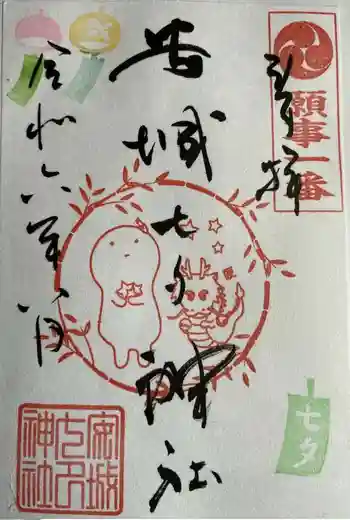 奉拝
願事一番
安城七夕神社
令和六年八月
七夕
安城
七夕
神社